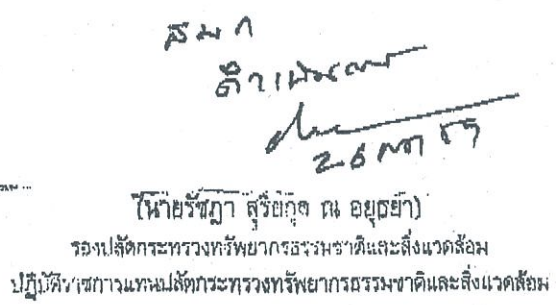 ดำเนินการ
(นายรัชฎา สุริยกุล ณ อยุธยา)
รองปลัดกระทรวงทรัพยากรธรรมชาติและสิ่งแวดล้อม
ปฏิบัติราชการแทนปลัดกระทรวงทรัพยากรธรรมชาติและสิ่งแวดล้อม